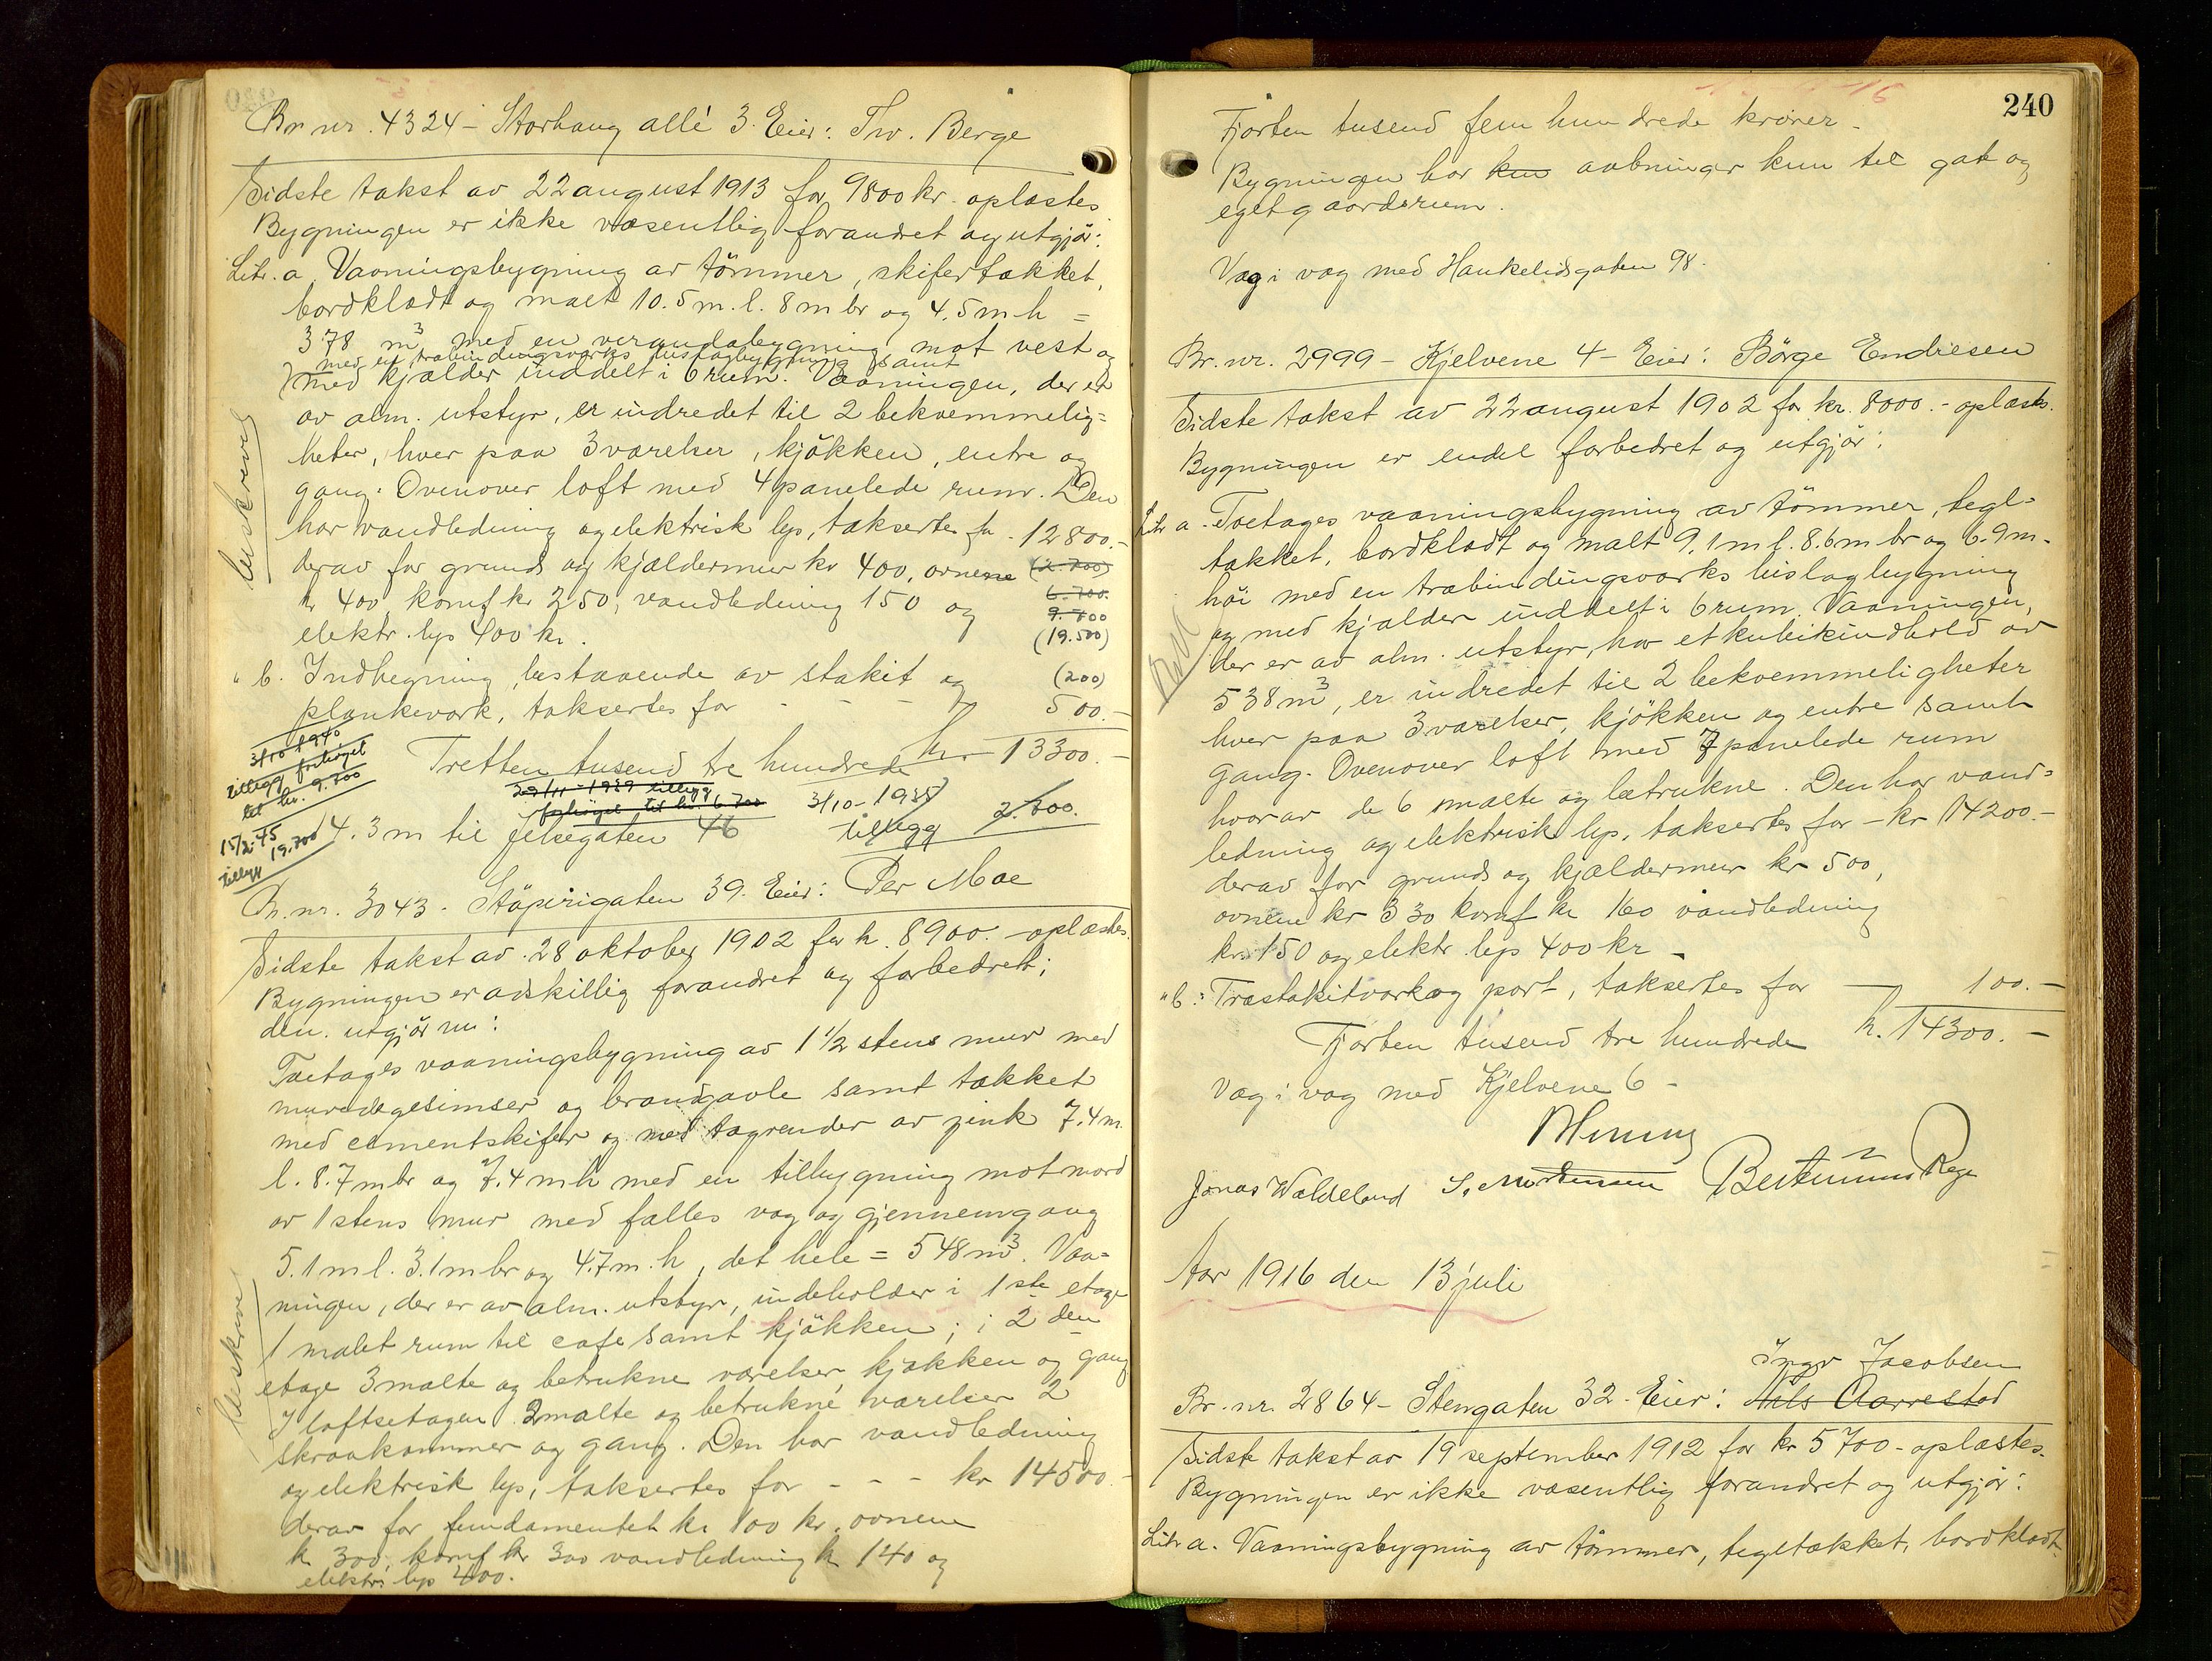 Br. nr. 4324 - Storhaug allé 3. Eier: Thv. Berge
Sidste takst av 22 august 1913 for 9800 kr. oplæstes
Bygningen er ikke væsentlig forandret og utgjør:
Litr. a. Vaaningsbygning av tømmer, skifertækket,
bordklædt og malt 10.5 m. l. 8 m br og 4.5 m h =
378 m³ med en verandabygning mot vest og
med en træbindingsverks bislagbygning samt
med kjælder inddelt i 6 rum. Vaaningen, der er
av alm. utstyr, er indredet til 2 bekvemmelig=
heter, hver paa 3 værelser, kjøkken, entre og
gang. Ovenover loft med 4 panelede rum. Den
har vandledning og elektrisk lys, taksertes for - 12800.-
derav for grund og kjældermur kr 400, ovnene (2.700)
kr 400, komf kr 250, vandledning 150 og 6.700.
elektr. lys 400 kr. 9.700
(19.500)
beskrevet
" b. Indhegning, bestaaende av stakit og (200)
plankeverk, taksertes for - - - - 500.-
kr. 13300.-
Tretten tusend tre hundrede
3/10 1940
tillegg forhöiet
til kr. 9.700
15/2-45
tillegg 19.700
29/11-1939 tillegg
forhöiet til kr. 6700
3/10-1935
tillegg 2.700.
4.3 m til Jelsegaten 46
Br. nr. 3043. Støperigaten 39. Eier: Per Moe
Sidste takst av 28 oktober 1902 for kr. 8900.- oplæstes.
Bygningen er adskillig forandret og forbedret;
den utgjør nu:
Toetages vaaningsbygning av 1½ stens mur med
murede gesimser og brandgavle samt tækket
med cementskifer og med tagrender av zink 7.4 m.
l. 8.7 m br og 7.4 m h med en tilbygning mot nord
av 1 stens mur med fælles væg og gjennemgang
5.1 m l. 3.1 m br og 4.7 m. h, det hele = 548 m³. Vaa=
ningen, der er av alm. utstyr, indeholder i 1ste etage
1 malet rum til cafe samt kjøkken; i 2den
etage 3 malte og betrukne værelser kjøkken og gang
I loftsetagen 2 malte og betrukne værelser 2
skraakammer og gang. Den har vandledning
og elektrisk lys, taksertes for - - - kr 14500.-
derav for fundamentet kr 100 kr, ovnene
kr 300, komf kr 300 vandledning kr 140 og
elektr. lys 400.
beskrevet
240
Fjorten tusend fem hundrede kroner -
Bygningen har kun aabninger kun til gate og
eget gaardsrum.
Væg i væg med Haukelidsgaten 98.
Br. nr. 2999 - Kjelvene 4 - Eier: Børge Endresen
Sidste takst av 22 august 1902 for kr. 8000.- oplæstes.
Bygningen er endel forbedret og utgjør:
Litr a. Toetages vaaningsbygning av tømmer, tegl=
tækket, bordklædt og malt 9.1 m l. 8.6 m br og 6.9 m.
høi med en træbindingsverks bislagbygning
og med kjælder inddelt i 6 rum. Vaaningen,
der er av alm. utstyr, har et kubikindhold av
538 m³, er indredet til 2 bekvemmeligheter
hver paa 3 værelser, kjøkken og entre samt
gang. Ovenover loft med 7 panelede rum
hvorav de 6 malte og betrukne. Den har vand=
ledning og elektrisk lys, taksertes for - kr 14200.-
derav for grund og kjældermur kr 500,
ovnene kr 330 komf kr 160 vandledning
kr. 150 og elektr. lys 400 kr -
" b.: Træstakitverk og port, taksertes for - 100.-
kr. 14300.-
Fjorten tusend tre hundrede
Væg i væg med Kjelvene 6 -
Jonas Waldeland S. Mortensen
Aar 1916 den 13 juli
Ingv Jacobsen
Br. nr. 2864 - Stengaten 32. Eier: Nils Aarrestad
Sidste takst av 19 september 1912 for kr 5700 - oplæstes.
Bygningen er ikke væsentlig forandret og utgjør:
Litr a. Vaaningsbygning av tømmer, tegltækket, bordklædt